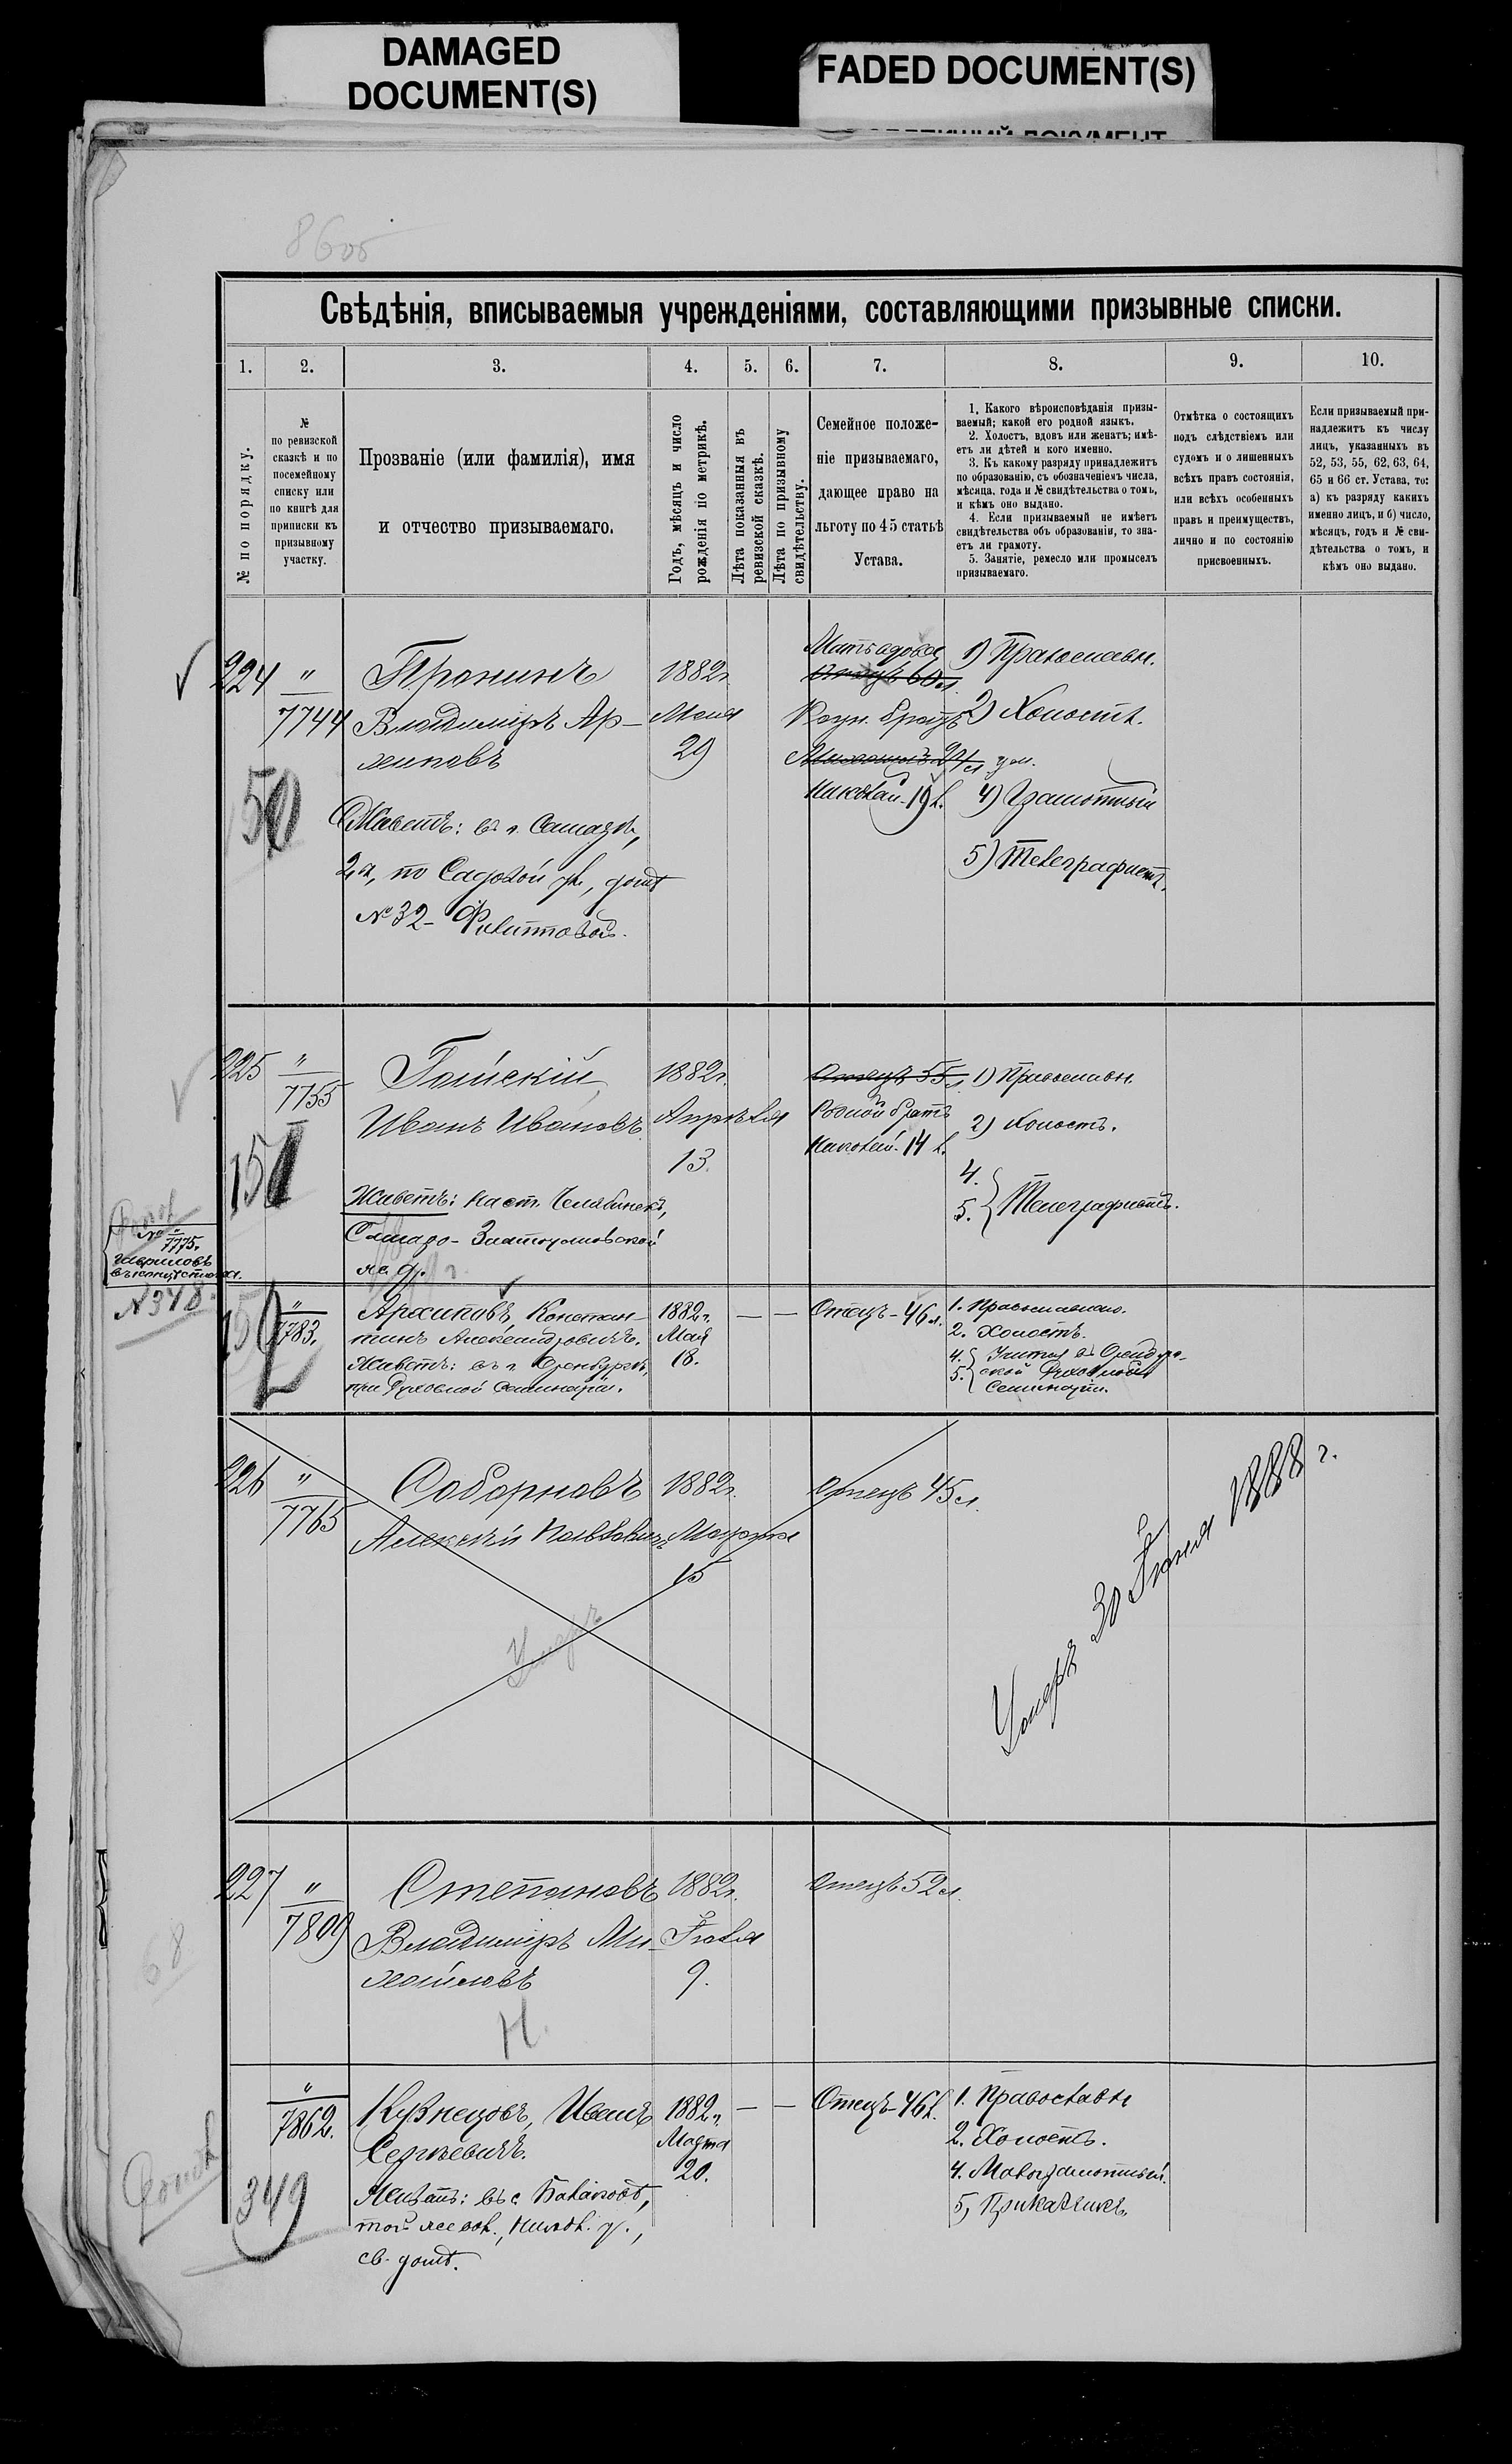 DAMAGED
DOCUMENT(S)
FADED DOCUMENT(S)
8605
Свѣдѣнія, вписываемыя учрежденіями, составляющими призывные списки.
1. 2. 3. 4. 5. 6. 7. 8. 9. 10.
№ по порядку.
№
по ревизской
сказкѣ и по
посемейному
списку или
по книгѣ для
приписки къ
призывному
участку.
Прозваніе (или фамилія), имя
и отчество призываемаго.
Годъ, мѣсяцъ и число
рожденія по метрикѣ.
Лѣта показанныя въ
ревизской сказкѣ.
Лѣта по призывному
свидѣтельству.
Семейное положе-
ніе призываемаго,
дающее право на
льготу по 45 статьѣ
Устава.
1. Какого вѣроисповѣданія призы-
ваемый; какой его родной языкъ.
2. Холостъ, вдовъ или женатъ; имѣ-
етъ ли дѣтей и кого именно.
3. Къ какому разряду принадлежитъ
по образованію, съ обозначеніемъ числа,
мѣсяца, года и № свидѣтельства о томъ,
и кѣмъ оно выдано.
4. Если призываемый не имѣетъ
свидѣтельства объ образованіи, то зна-
етъ ли грамоту.
5. Занятіе, ремесло или промыселъ
призываемаго.
Отмѣтка о состоящихъ
подъ слѣдствіемъ или
судомъ и о лишенныхъ
всѣхъ правъ состоянія,
или всѣхъ особенныхъ
правъ и преимуществъ,
лично и по состоянію
присвоенныхъ.
Если призываемый при-
надлежитъ къ числу
лицъ, указанныхъ въ
52, 53, 55, 62, 63, 64,
65 и 66 ст. Устава, то:
а) къ разряду какихъ
именно лицъ, и б) число,
мѣсяцъ, годъ и № сви-
дѣтельства о томъ, и
кѣмъ оно выдано.
224
"
7744
150
Пронинъ
Владиміръ Ар-
хиповъ
Живетъ: въ г. Самарѣ,
2 ч, по Садовой ул, домъ
№ 32 - Филиттовой.
1882 г.
Мая
29
Мать вдова
Отецъ 60 л.
Родн. братъ
Николай - 19 л.
1) Православн.
2) Холостъ.
4) Грамотный
5) Телеграфистъ.
225
"
7755
151
Гойскій
Иванъ Ивановъ
Живетъ: на ст. Челябинскъ,
Самаро-Златоустовской
ж. д.
1882 г.
Апрѣля
13.
Отецъ 55 л.
Родной братъ
Николай - 14 л.
1) Православн.
2) Холостъ.
4.
5. Телеграфистъ.
№ "
7775.
Гавриловъ
въ концѣ списка.
№ 348.
152
"
7783.
Архиповъ, Констан-
тинъ Александровичъ.
Живетъ: въ г. Оренбургѣ,
при Духовной Семинаріи.
1882 г.
Мая
18.
— —
Отецъ - 46 л.
1. Православнаго.
2. Холостъ.
4. Учится въ Оренбург-
5. ской Духовной
Семинаріи.
226
"
7765
Соборновъ
Алексѣй Павловичъ
Умеръ
1882 г.
Марта
15
Отецъ 45 л.
Умеръ 30 Іюня 1888 г.
227
"
7809
Степановъ
Владиміръ Ми-
хайловъ
Н.
1882 г.
Іюля
9.
Отецъ 52 л.
68
"
7862.
349
Кузнецовъ, Иванъ
Сергѣевичъ.
Живетъ: въ с. Балаково,
той же вол., Никол. у.,
св. домъ.
1882 г.
Марта
20.
— —
Отецъ - 46 л.
1. Православн
2. Холостъ.
4. Малограмотный.
5, Прикащикъ.